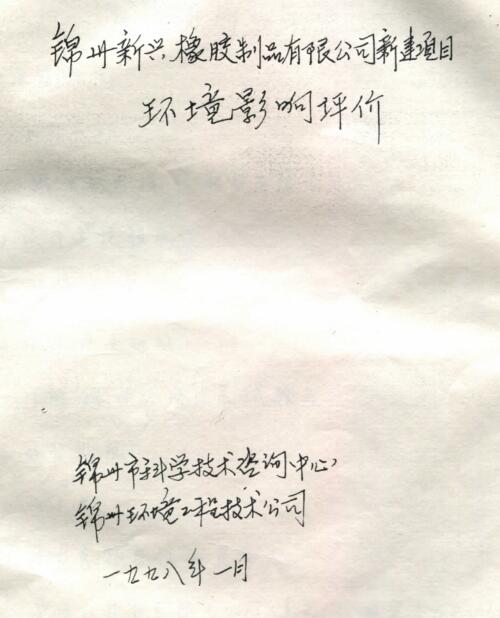 锦州新兴橡胶制品有限公司新建项目
环境影响评价
锦州市科学技术咨询中心
锦州环境工程技术公司
一九九八年一月